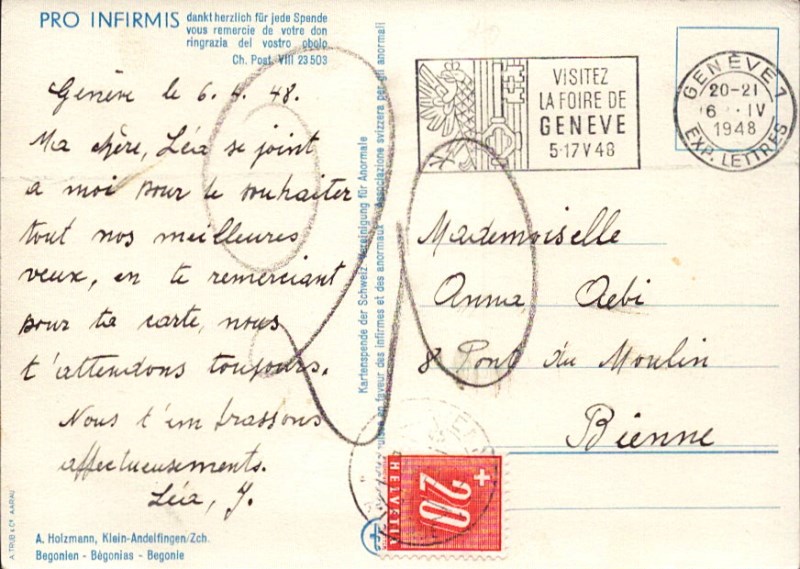 PRO INFIRMIS
dankt herzlich für jede Spende
vous remercie de votre don
ringrazia del vostro obolo
Ch. Post. VIII 23 503
Genève le 6. 4. 48.
Ma chère, Léa se joint
a moi pour te souhaiter
tout nos meilleures
veux, en te remerciant
pour ta carte, nous
t'attendons toujours.
Nous t'embrassons
affectueusements.
Léa, J.
A. Holzmann, Klein-Andelfingen/Zch.
Begonien - Bégonias - Begonie
A. TRÜB & CIE AARAU
Kartenspende der Schweiz. Vereinigung für Anormale
en faveur des infirmes et des anormaux Associazione svizzera per gli anormali
VISITEZ
LA FOIRE DE
GENEVE
5-17 V 48
GENÈVE 1
20-21
6 IV
1948
EXP. LETTRES
Mademoiselle
Anna Aebi
8 Pont du Moulin
Bienne
20
HELVETIA